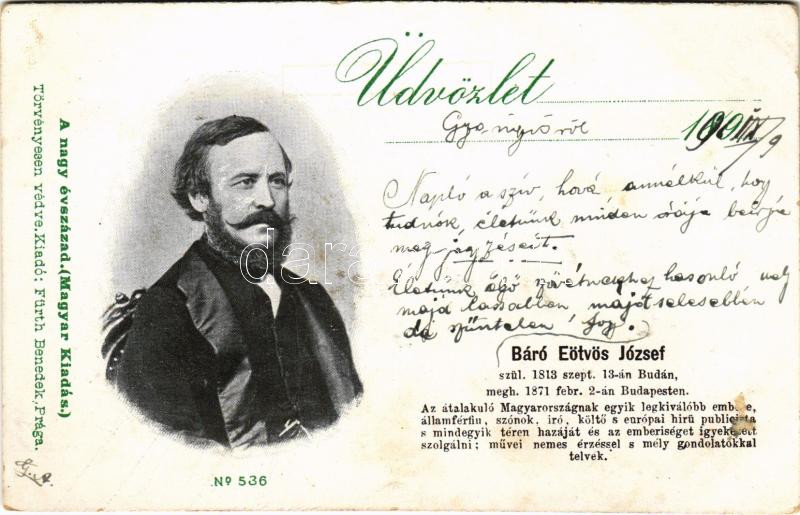 Üdvözlet
Gyöngyösről 1901 IX/9
Napló a szív, hová annélkül, hogy
tudnók, életünk minden órája beírja
meg jegyzéseit.
Életünk égő szövétnekhez hasonló mely
majd lassabban majd sebesebben
de szüntelen fogy.
Báró Eötvös József
szül. 1813 szept. 13-án Budán,
megh. 1871 febr. 2-án Budapesten.
Az átalakuló Magyarországnak egyik legkiválóbb embere,
államférfiu, szónok, iró, költő s európai hirü publicista
s mindegyik téren hazáját és az emberiséget igyekezett
szolgálni; művei nemes érzéssel s mély gondolatokkal
telvék.
A nagy évszázad. (Magyar Kiadás.)
Törvényesen védve. Kiadó: Fürth Benedek, Prága.
Nº 536
darabanth